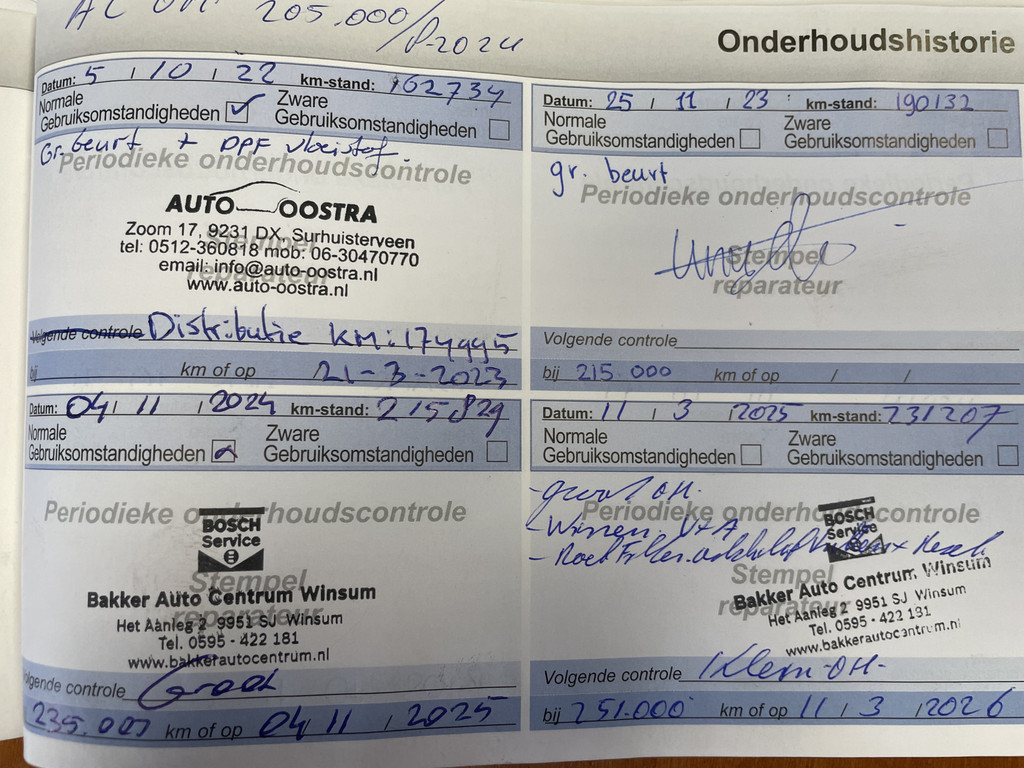 205.000/
8-2024
Onderhoudshistorie
Datum: 5 / 10 / 22 km-stand: 162734
Normale
Gebruiksomstandigheden
Zware
Gebruiksomstandigheden
Gr. beurt + DPF vloeistof
Periodieke onderhoudscontrole
AUTO OOSTRA
Zoom 17, 9231 DX, Surhuisterveen
tel: 0512-360818 mob: 06-30470770
email: info@auto-oostra.nl
www.auto-oostra.nl
Stempel
reparateur
Volgende controle Distributie KM: 174995
bij km of op 21-3-2023
Datum: 25 / 11 / 23 km-stand: 190132
Normale
Gebruiksomstandigheden
Zware
Gebruiksomstandigheden
gr. beurt
Periodieke onderhoudscontrole
Stempel
reparateur
Volgende controle
bij 215.000 km of op / /
Datum: 04 / 11 / 2024 km-stand: 215829
Normale
Gebruiksomstandigheden
Zware
Gebruiksomstandigheden
Periodieke onderhoudscontrole
BOSCH
Service
Stempel
reparateur
Bakker Auto Centrum Winsum
Het Aanleg 2 9951 SJ Winsum
Tel. 0595 - 422 181
www.bakkerautocentrum.nl
Volgende controle Groot
235.000 km of op 04 / 11 / 2025
Datum: 11 / 3 / 2025 km-stand: 231207
Normale
Gebruiksomstandigheden
Zware
Gebruiksomstandigheden
- groot OH.
Periodieke onderhoudscontrole
- Wissen V+A
BOSCH
Service
Stempel
reparateur
Bakker Auto Centrum Winsum
Het Aanleg 2 9951 SJ Winsum
Tel. 0595 - 422 181
www.bakkerautocentrum.nl
Volgende controle Klein OH.
bij 251.000 km of op 11 / 3 / 2026